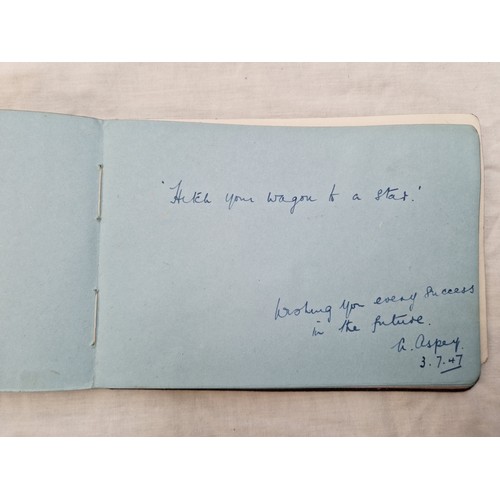 'Hitch your wagon to a star.'
Wishing you every success
in the future.
A. Aspey.
3.7.47